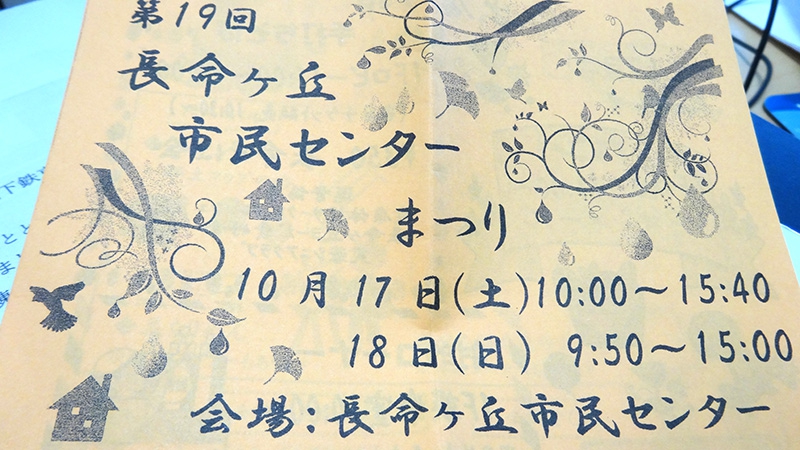 第19回
長命ヶ丘
市民センター
まつり
10月17日(土)10:00～15:40
18日(日) 9:50～15:00
会場:長命ヶ丘市民センター